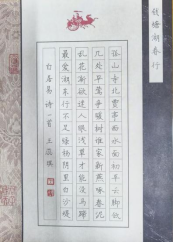 钱塘湖春行
孤山寺北贾亭西水面初平云脚低
几处早莺争暖树谁家新燕啄春泥
乱花渐欲迷人眼浅草才能没马蹄
最爱湖东行不足绿杨阴里白沙堤
白居易诗一首 王琪